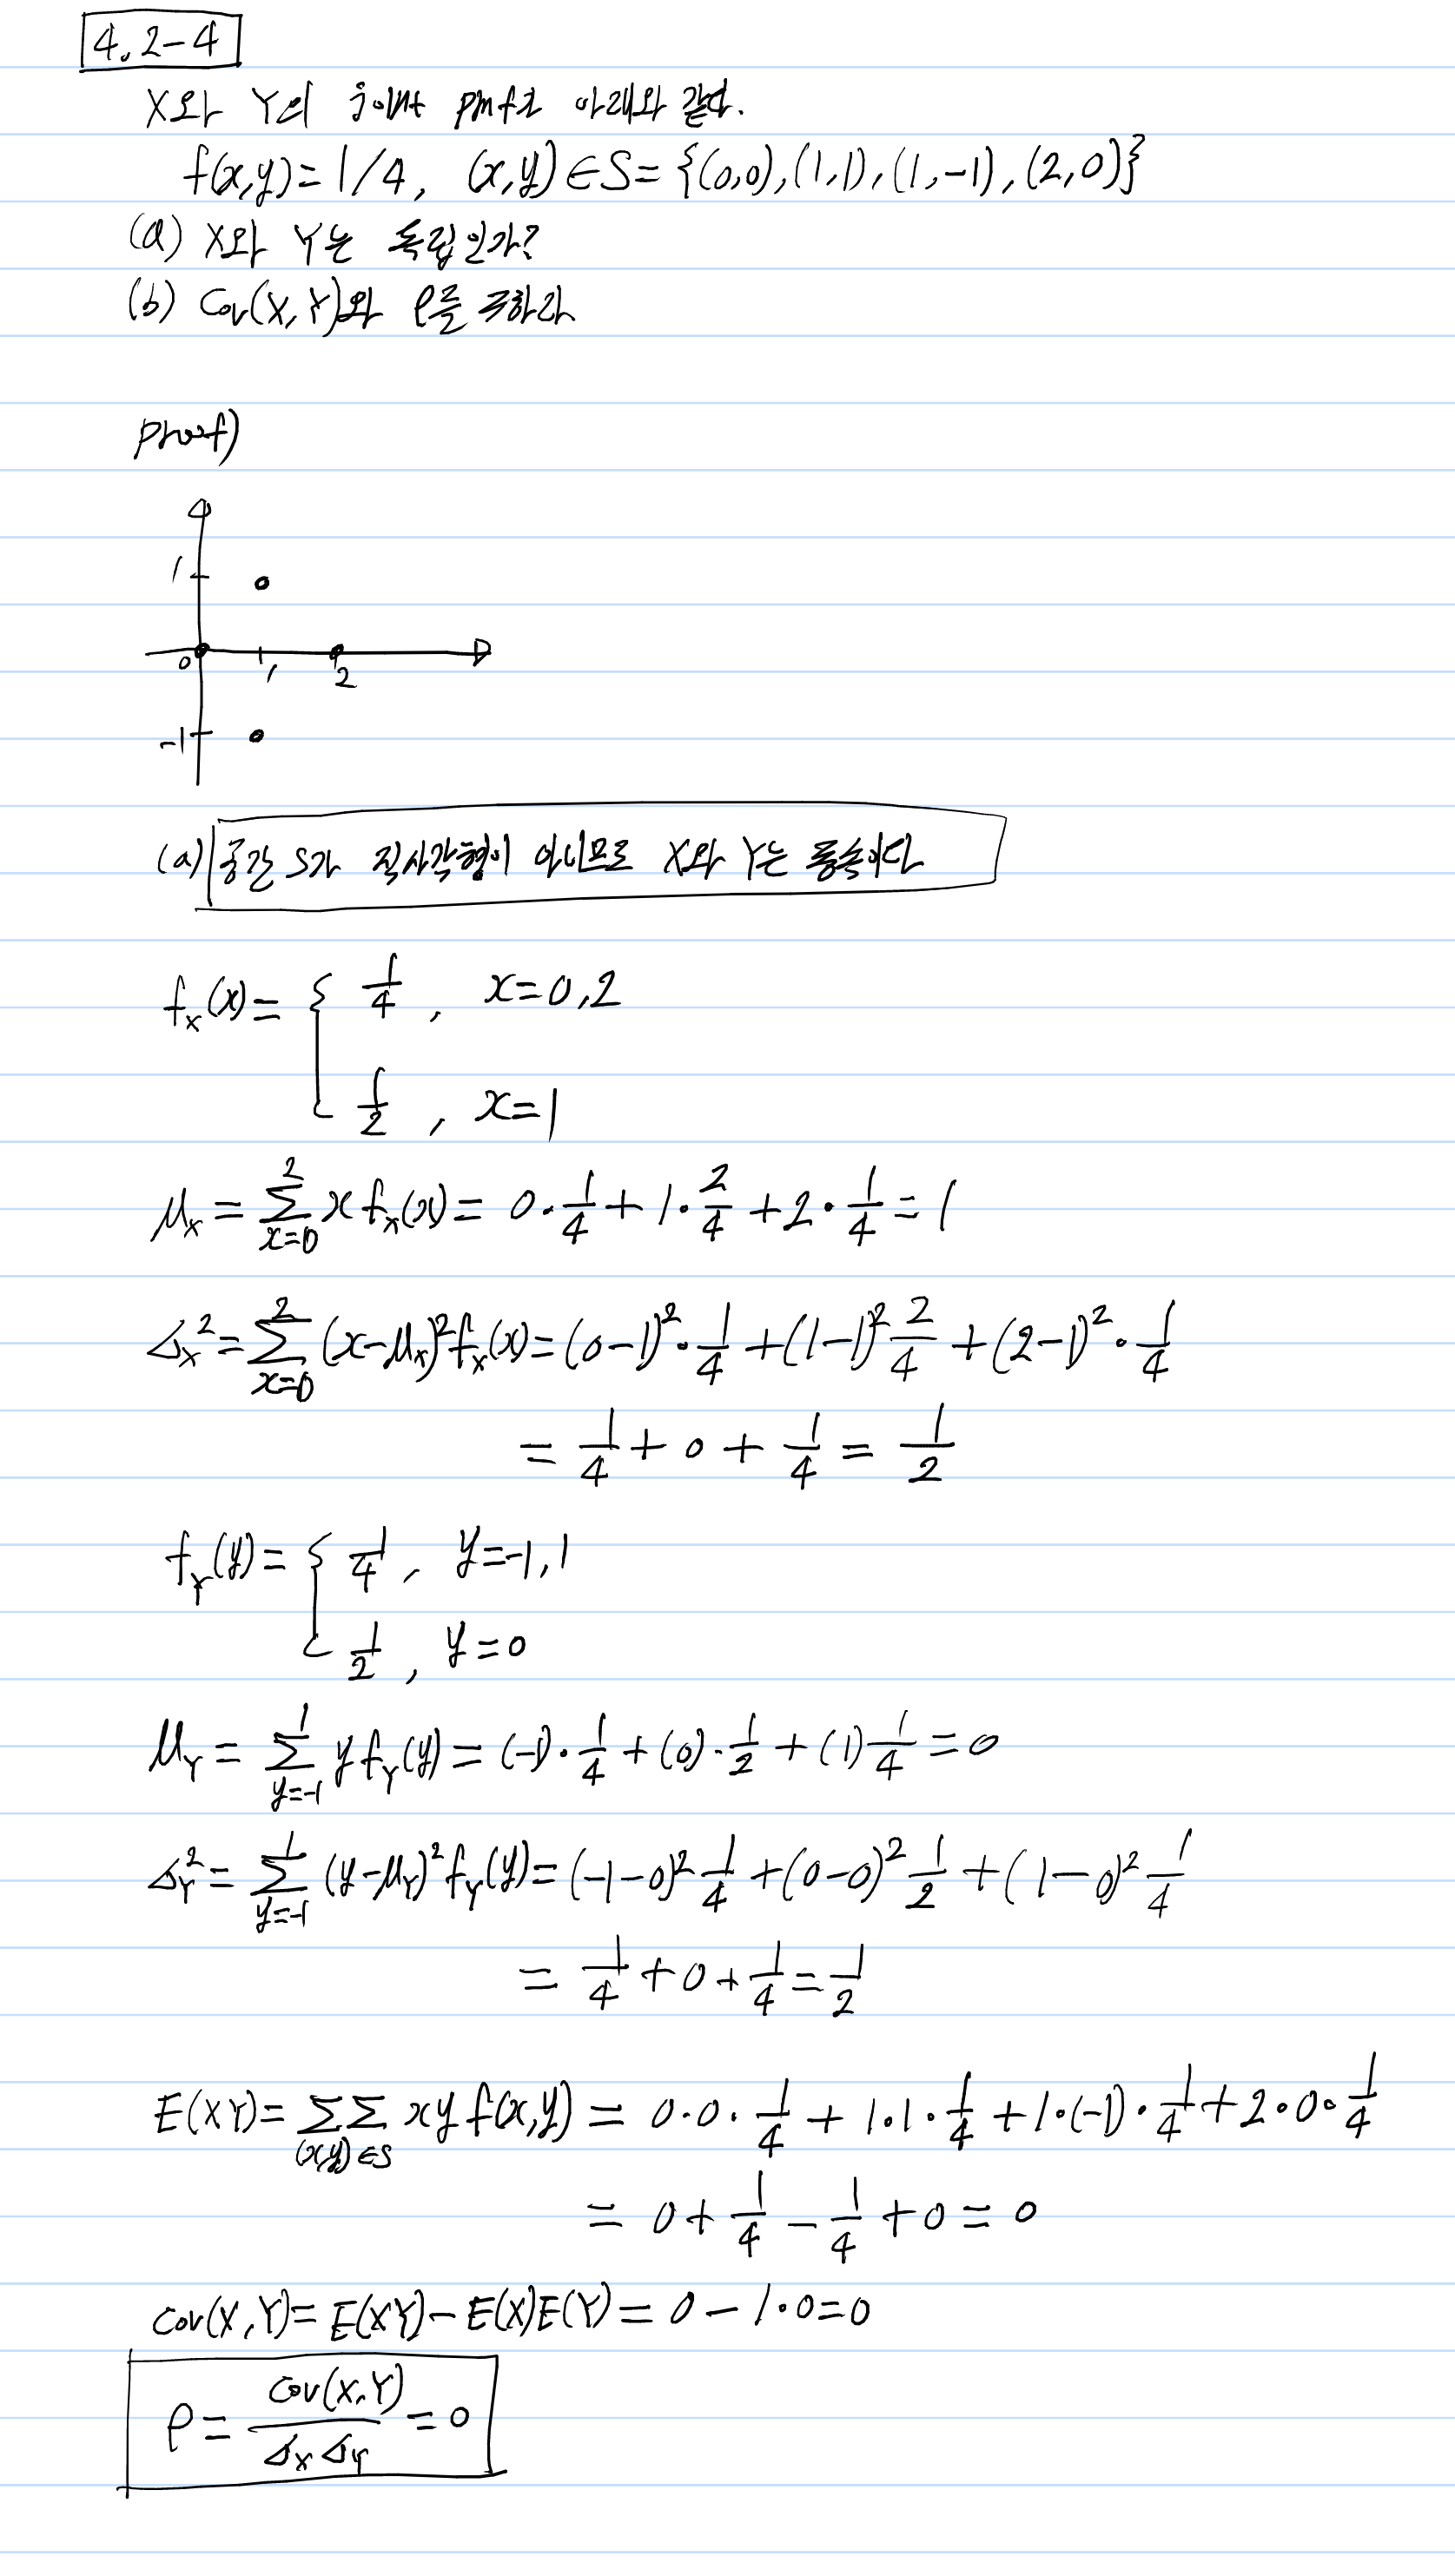 4.2-4
X와 Y의 joint pmf가 아래와 같다.
f(x,y)=1/4, (x,y)∈S={(0,0),(1,1),(1,-1),(2,0)}
(a) X와 Y는 독립인가?
(b) Cov(X,Y)와 ρ를 구하라
proof)
1
0 1 2
-1
(a) 공간 S가 직사각형이 아니므로 X와 Y는 종속이다
f_X(x)= { 1/4, x=0,2
1/2, x=1
μ_X = Σ_{x=0}^{2} x f_X(x) = 0·1/4 + 1·2/4 + 2·1/4 = 1
σ_X^2 = Σ_{x=0}^{2} (x-μ_X)^2 f_X(x) = (0-1)^2·1/4 + (1-1)^2 2/4 + (2-1)^2·1/4
= 1/4 + 0 + 1/4 = 1/2
f_Y(y)= { 1/4, y=-1,1
1/2, y=0
μ_Y = Σ_{y=-1}^{1} y f_Y(y) = (-1)·1/4 + (0)·1/2 + (1) 1/4 = 0
σ_Y^2 = Σ_{y=-1}^{1} (y-μ_Y)^2 f_Y(y) = (-1-0)^2 1/4 + (0-0)^2 1/2 + (1-0)^2 1/4
= 1/4 + 0 + 1/4 = 1/2
E(XY) = ΣΣ_{(x,y)∈S} xy f(x,y) = 0·0·1/4 + 1·1·1/4 + 1·(-1)·1/4 + 2·0·1/4
= 0 + 1/4 - 1/4 + 0 = 0
Cov(X,Y) = E(XY) - E(X)E(Y) = 0 - 1·0 = 0
ρ = Cov(X,Y)/σ_X σ_Y = 0